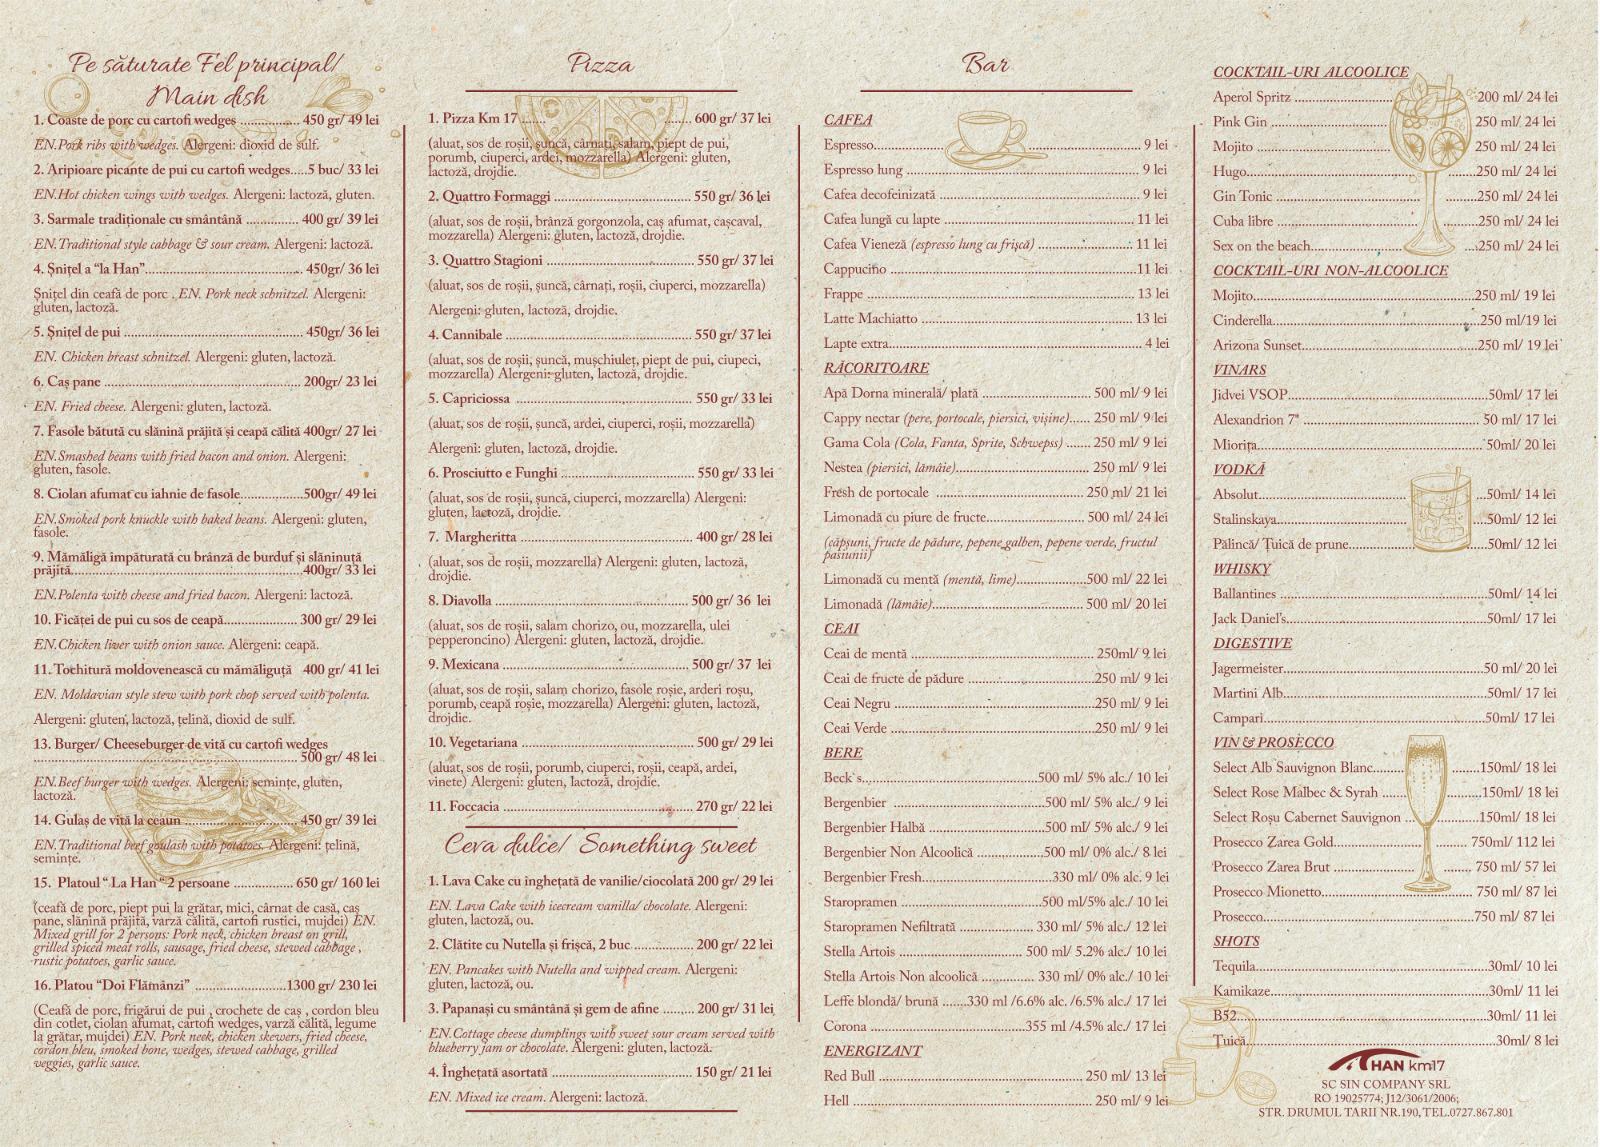 Pe săturate Fel principal/
Main dish
1. Coaste de porc cu cartofi wedges .............. 450 gr/ 49 lei
EN.Pork ribs with wedges. Alergeni: dioxid de sulf.
2. Aripioare picante de pui cu cartofi wedges.....5 buc/ 33 lei
EN.Hot chicken wings with wedges. Alergeni: lactoză, gluten.
3. Sarmale tradiționale cu smântână .............. 400 gr/ 39 lei
EN.Traditional style cabbage & sour cream. Alergeni: lactoză.
4. Șnițel a “la Han”........................................ 450gr/ 36 lei
Șnițel din ceafă de porc . EN. Pork neck schnitzel. Alergeni:
gluten, lactoză.
5. Șnițel de pui .............................................. 450gr/ 36 lei
EN. Chicken breast schnitzel. Alergeni: gluten, lactoză.
6. Caș pane .................................................. 200gr/ 23 lei
EN. Fried cheese. Alergeni: gluten, lactoză.
7. Fasole bătută cu slănină prăjită și ceapă călită 400gr/ 27 lei
EN.Smashed beans with fried bacon and onion. Alergeni:
gluten, fasole.
8. Ciolan afumat cu iahnie de fasole................500gr/ 49 lei
EN.Smoked pork knuckle with baked beans. Alergeni: gluten,
fasole.
9. Mămăligă împăturată cu brânză de burduf și slăninuță
prăjită..........................................................400gr/ 33 lei
EN.Polenta with cheese and fried bacon. Alergeni: lactoză.
10. Ficăței de pui cu sos de ceapă................... 300 gr/ 29 lei
EN.Chicken liver with onion sauce. Alergeni: ceapă.
11. Tochitură moldovenească cu mămăliguță 400 gr/ 41 lei
EN. Moldavian style stew with pork chop served with polenta.
Alergeni: gluten, lactoză, țelină, dioxid de sulf.
13. Burger/ Cheeseburger de vită cu cartofi wedges
.................................................................... 500 gr/ 48 lei
EN.Beef burger with wedges. Alergeni: semințe, gluten,
lactoză.
14. Gulaș de vită la ceaun ..............................450 gr/ 39 lei
EN.Traditional beef goulash with potatoes. Alergeni: țelină,
semințe.
15. Platoul “ La Han “ 2 persoane ............... 650 gr/ 160 lei
(ceafă de porc, piept pui la grătar, mici, cârnat de casă, caș
pane, slănină prăjită, varză călită, cartofi rustici, mujdei) EN.
Mixed grill for 2 persons: Pork neck, chicken breast on grill,
grilled spiced meat rolls, sausage, fried cheese, stewed cabbage ,
rustic potatoes, garlic sauce.
16. Platou “Doi Flămânzi” .........................1300 gr/ 230 lei
(Ceafă de porc, frigărui de pui , crochete de caș , cordon bleu
din cotlet, ciolan afumat, cartofi wedges, varză călită, legume
la grătar, mujdei) EN. Pork neek, chicken skewers, fried cheese,
cordon bleu, smoked bone, wedges, stewed cabbage, grilled
veggies, garlic sauce.
Pizza
1. Pizza Km 17 ...... ....... 600 gr/ 37 lei
(aluat, sos de roșii, șuncă, cârnați, salam, piept de pui,
porumb, ciuperci, ardei, mozzarella) Alergeni: gluten,
lactoză, drojdie.
2. Quattro Formaggi ................................... 550 gr/ 36 lei
(aluat, sos de roșii, brânză gorgonzola, caș afumat, cașcaval,
mozzarella) Alergeni: gluten, lactoză, drojdie.
3. Quattro Stagioni ..................................... 550 gr/ 37 lei
(aluat, sos de roșii, șuncă, cârnați, roșii, ciuperci, mozzarella)
Alergeni: gluten, lactoză, drojdie.
4. Cannibale ................................................ 550 gr/ 37 lei
(aluat, sos de roșii, șuncă, mușchiuleț, piept de pui, ciupeci,
mozzarella) Alergeni: gluten, lactoză, drojdie.
5. Capriciossa .............................................. 550 gr/ 33 lei
(aluat, sos de roșii, șuncă, ardei, ciuperci, roșii, mozzarella)
Alergeni: gluten, lactoză, drojdie.
6. Prosciutto e Funghi ................................. 550 gr/ 33 lei
(aluat, sos de roșii, șuncă, ciuperci, mozzarella) Alergeni:
gluten, lactoză, drojdie.
7. Margheritta ............................................. 400 gr/ 28 lei
(aluat, sos de roșii, mozzarella) Alergeni: gluten, lactoză,
drojdie.
8. Diavolla ................................................. 500 gr/ 36 lei
(aluat, sos de roșii, salam chorizo, ou, mozzarella, ulei
pepperoncino) Alergeni: gluten, lactoză, drojdie.
9. Mexicana ................................................. 500 gr/ 37 lei
(aluat, sos de roșii, salam chorizo, fasole roșie, arderi roșu,
porumb, ceapă roșie, mozzarella) Alergeni: gluten, lactoză,
drojdie.
10. Vegetariana ............................................ 500 gr/ 29 lei
(aluat, sos de roșii, porumb, ciuperci, roșii, ceapă, ardei,
vinete) Alergeni: gluten, lactoză, drojdie.
11. Foccacia ................................................ 270 gr/ 22 lei
Ceva dulce/ Something sweet
1. Lava Cake cu înghețată de vanilie/ciocolată 200 gr/ 29 lei
EN. Lava Cake with icecream vanilla/ chocolate. Alergeni:
gluten, lactoză, ou.
2. Clătite cu Nutella și frișcă, 2 buc ............... 200 gr/ 22 lei
EN. Pancakes with Nutella and wipped cream. Alergeni:
gluten, lactoză, ou.
3. Papanași cu smântână și gem de afine ........ 200 gr/ 31 lei
EN.Cottage cheese dumplings with sweet sour cream served with
blueberry jam or chocolate. Alergeni: gluten, lactoză.
4. Înghețată asortată .................................... 150 gr/ 21 lei
EN. Mixed ice cream. Alergeni: lactoză.
Bar
CAFEA
Espresso................. ........................ 9 lei
Espresso lung ........................................ 9 lei
Cafea decofeinizată ................................ 9 lei
Cafea lungă cu lapte .............................. 11 lei
Cafea Vieneză (espresso lung cu frișcă) ......... 11 lei
Cappucino ............................................11 lei
Frappe .................................................. 13 lei
Latte Machiatto .................................... 13 lei
Lapte extra............................................ 4 lei
RĂCORITOARE
Apă Dorna minerală/ plată .................... 500 ml/ 9 lei
Cappy nectar (pere, portocale, piersici, vișine)..... 250 ml/ 9 lei
Gama Cola (Cola, Fanta, Sprite, Schwepss) ...... 250 ml/ 9 lei
Nestea (piersici, lămâie)........................ 250 ml/ 9 lei
Fresh de portocale .............................. 250 ml/ 21 lei
Limonadă cu piure de fructe.................. 500 ml/ 24 lei
(căpșuni, fructe de pădure, pepene galben, pepene verde, fructul
pasiunii)
Limonadă cu mentă (mentă, lime)............500 ml/ 22 lei
Limonadă (lămâie)............................ 500 ml/ 20 lei
CEAI
Ceai de mentă .................................. 250ml/ 9 lei
Ceai de fructe de pădure .......................250 ml/ 9 lei
Ceai Negru ........................................250 ml/ 9 lei
Ceai Verde ........................................250 ml/ 9 lei
BERE
Beck`s................................500 ml/ 5% alc./ 10 lei
Bergenbier ..........................500 ml/ 5% alc./ 9 lei
Bergenbier Halbă .................500 ml/ 5% alc./ 9 lei
Bergenbier Non Alcoolică ...........500 ml/ 0% alc./ 8 lei
Bergenbier Fresh.....................330 ml/ 0% alc. 9 lei
Staropramen ........................500 ml/5% alc./ 10 lei
Staropramen Nefiltrată .......... 330 ml/ 5% alc./ 12 lei
Stella Artois ..................... 500 ml/ 5.2% alc./ 10 lei
Stella Artois Non alcoolică ........ 330 ml/ 0% alc./ 10 lei
Leffe blondă/ brună .......330 ml /6.6% alc. /6.5% alc./ 17 lei
Corona ...........................355 ml /4.5% alc./ 17 lei
ENERGIZANT
Red Bull ......................................... 250 ml/ 13 lei
Hell ................................................ 250 ml/ 9 lei
COCKTAIL-URI ALCOOLICE
Aperol Spritz ....................... 200 ml/ 24 lei
Pink Gin ............................. 250 ml/ 24 lei
Mojito ................................ 250 ml/ 24 lei
Hugo................................... 250 ml/ 24 lei
Gin Tonic ........................... 250 ml/ 24 lei
Cuba libre ........................... 250 ml/ 24 lei
Sex on the beach................... 250 ml/ 24 lei
COCKTAIL-URI NON-ALCOOLICE
Mojito.............................................250 ml/ 19 lei
Cinderella..........................................250 ml/19 lei
Arizona Sunset...................................250 ml/ 19 lei
VINARS
Jidvei VSOP........................................50ml/ 17 lei
Alexandrion 7* .................................. 50 ml/ 17 lei
Miorița................................................50ml/ 20 lei
VODKĂ
Absolut............................... 50ml/ 14 lei
Stalinskaya.......................... 50ml/ 12 lei
Pălincă/ Țuică de prune........ 50ml/ 12 lei
WHISKY
Ballantines ..........................................50ml/ 14 lei
Jack Daniel’s.........................................50ml/ 17 lei
DIGESTIVE
Jagermeister........................................50 ml/ 20 lei
Martini Alb..........................................50ml/ 17 lei
Campari..............................................50ml/ 17 lei
VIN & PROSECCO
Select Alb Sauvignon Blanc............. 150ml/ 18 lei
Select Rose Malbec & Syrah ........... 150ml/ 18 lei
Select Roșu Cabernet Sauvignon ..... 150ml/ 18 lei
Prosecco Zarea Gold.................... 750ml/ 112 lei
Prosecco Zarea Brut .................... 750 ml/ 57 lei
Prosecco Mionetto....................... 750 ml/ 87 lei
Prosecco............................................750 ml/ 87 lei
SHOTS
Tequila................................................30ml/ 10 lei
Kamikaze..............................................30ml/ 11 lei
B52.....................................................30ml/ 11 lei
Țuică...................................................30ml/ 8 lei
HAN km17
SC SIN COMPANY SRL
RO 19025774; J12/3061/2006;
STR. DRUMUL TARII NR.190, TEL.0727.867.801